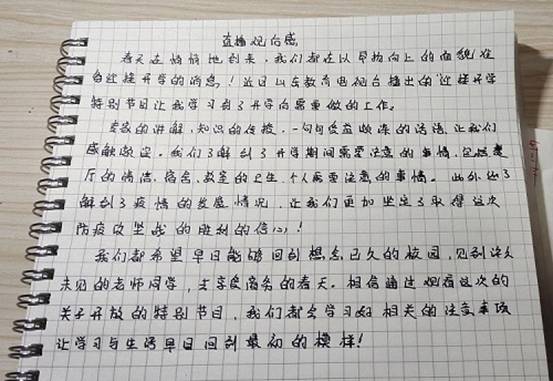 直播观后感
春天在悄悄地到来,我们都在以早物向上的面貌在
当迎接开学的消息!近日山东教育电视台播出的"迎接开学
特别节目让我学习到了开学前需要做的工作。
专家的讲解,知识的传授,一句句受益颇深的话语,让我们
感触颇深。我们了解到了开学期间需要注意的事情,包括
厅的情洁,宿舍,教室的卫生,个人需要注意的事情。此外也了
解到了疫情的发展情况,让我们更加坚定了取得这次
防疫攻坚战的胜利的信心!
我们都希望早日能够回到想念已久的校园,见到许久
未见的老师同学,去享受离务的春天。相信通过观看这次的
关于开放的特别节目,我们都会学习好相关的注意事项
让学习与生活早日回到最初的模样!